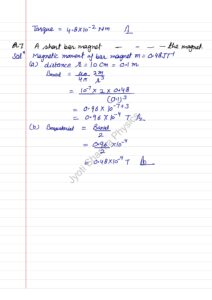 Torque = 4.8×10⁻² Nm A
Q.7 A short bar magnet - - - - - the magnet.
Solⁿ Magnetic moment of bar magnet m = 0.48JT⁻¹
(a) distance r = 10cm = 0.1m
Baxial = μ₀/4π 2m/r³
= 10⁻⁷ × 2 × 0.48 / (0.1)³
= 0.96 × 10⁻⁷⁺³
= 0.96 × 10⁻⁴ T
(b) Bequatorial = Baxial/2
= 0.96/2 × 10⁻⁴
= 0.48×10⁻⁴ T
Jyoti Physi